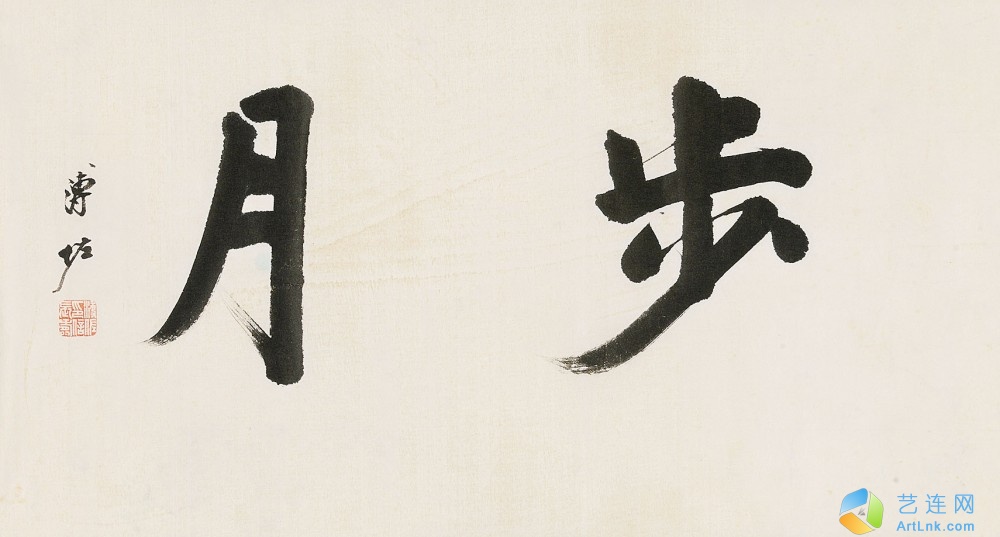 步月
溥佐
艺连网
ArtLnk.com